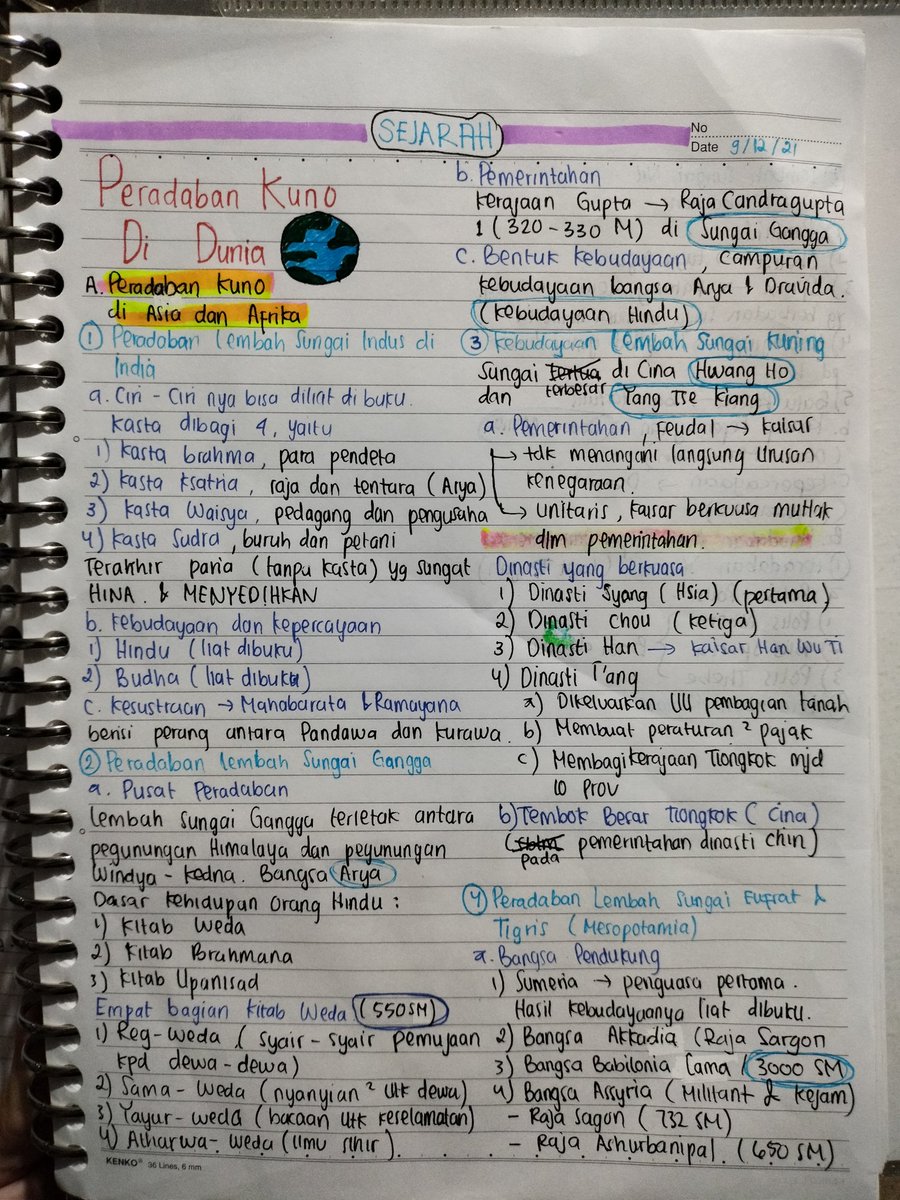 SEJARAH
No
Date 9/12/21
Peradaban Kuno
Di Dunia
A. Peradaban Kuno
di Asia dan Afrika
1 Peradaban Lembah Sungai Indus di
India
a. Ciri - Ciri nya bisa diliat di buku.
Kasta dibagi 4, yaitu
1) Kasta brahma, para pendeta
2) Kasta Ksatria, raja dan tentara (Arya)
3) Kasta Waisya, pedagang dan pengusaha
4) Kasta Sudra, buruh dan petani
Terakhir paria (tanpa kasta) yg sangat
HINA & MENYEDIHKAN
b. Kebudayaan dan kepercayaan
1) Hindu (liat dibuku)
2) Budha (liat dibuku)
c. Kesustraan → Mahabarata & Ramayana
berisi perang antara Pandawa dan Kurawa.
2 Peradaban Lembah Sungai Gangga
a. Pusat Peradaban
Lembah Sungai Gangga terletak antara
pegunungan Himalaya dan pegunungan
Windya - Kedna. Bangsa Arya
Dasar kehidupan orang Hindu :
1) Kitab Weda
2) Kitab Brahmana
3) Kitab Upanisad
Empat bagian Kitab Weda (550 SM)
1) Reg-Weda (syair-syair pemujaan
kpd dewa-dewa)
2) Sama-Weda (nyanyian ² utk dewa)
3) Yayur-weda (bacaan utk keselamatan)
4) Atharwa-weda (ilmu sihir)
b. Pemerintahan
Kerajaan Gupta → Raja Candragupta
1 (320-330 M) di Sungai Gangga
c. Bentuk Kebudayaan, campuran
kebudayaan bangsa Arya & Dravida.
(Kebudayaan Hindu)
3 Kebudayaan Lembah Sungai Kuning
Sungai Tertua terbesar di Cina Hwang Ho
dan Yang Tse Kiang
a. Pemerintahan, Feudal → kaisar
→ tdk menangani langsung Urusan
kenegaraan.
→ unitaris, kaisar berkuasa mutlak
dlm pemerintahan.
Dinasti yang berkuasa
1) Dinasti Syang (Hsia) (pertama)
2) Dinasti Chou (ketiga)
3) Dinasti Han → Kaisar Han Wu Ti
4) Dinasti T'ang
a) Dikeluarkan UU pembagian tanah
b) Membuat peraturan ² pajak
c) Membagi kerajaan Tiongkok mjd
10 Prov
b) Tembok Besar Tiongkok (Cina)
(sblm pada pemerintahan dinasti Chin)
4 Peradaban Lembah Sungai Eufrat &
Tigris (Mesopotamia)
a. Bangsa Pendukung
1) Sumeria → penguasa pertama.
Hasil kebudayaanya liat dibuku.
2) Bangsa Akkadia (Raja Sargon
3) Bangsa Babilonia Lama (3000 SM)
4) Bangsa Assyria (Militant & Kejam)
- Raja Sagon (732 SM)
- Raja Ashurbanipal. (650 SM)
KENKO® 36 Lines, 6 mm